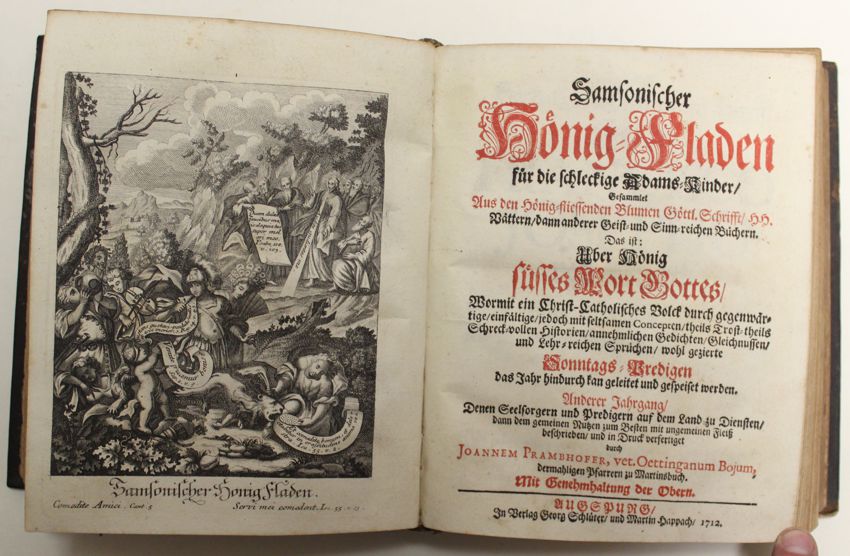 Quam dulcia
faucibus me-
is eloquia tua
super mel
ori meo.
Samsonischer Hönig Fladen.
Comedite Amici. Cant. 5
Servi mei comedent. Is. 65. v. 13.
Samsonischer
Hönig-Fladen
für die schleckige Adams-Kinder/
Gesammlet
Aus den Hönig-fliessenden Blumen Göttl. Schrifft/ HH.
Vättern/ dann anderer Geist- und Sinn-reichen Büchern.
Das ist:
Uber Hönig
süsses Wort Gottes/
Wormit ein Christ-Catholisches Volck durch gegenwär-
tige/ einfältige/ jedoch mit seltsamen Concepten/ theils Trost- theils
Schreck-vollen Historien/ annehmlichen Gedichten/ Gleichnussen/
und Lehr-reichen Sprüchen/ wohl gezierte
Sonntags-Predigen
das Jahr hindurch kan geleitet und gespeiset werden.
Anderer Jahrgang/
Denen Seelsorgern und Predigern auf dem Land zu Diensten/
dann dem gemeinen Nutzen zum Besten mit ungemeinen Fleiß
beschrieben/ und in Druck verfertiget
durch
JOANNEM PRAMBHOFER, vet. Oettinganum Bojum,
dermahligen Pfarrern zu Martinsbuch.
Mit Genehmhaltung der Obern.
AUGSPURG/
In Verlag Georg Schlüter/ und Martin Happach/ 1712.